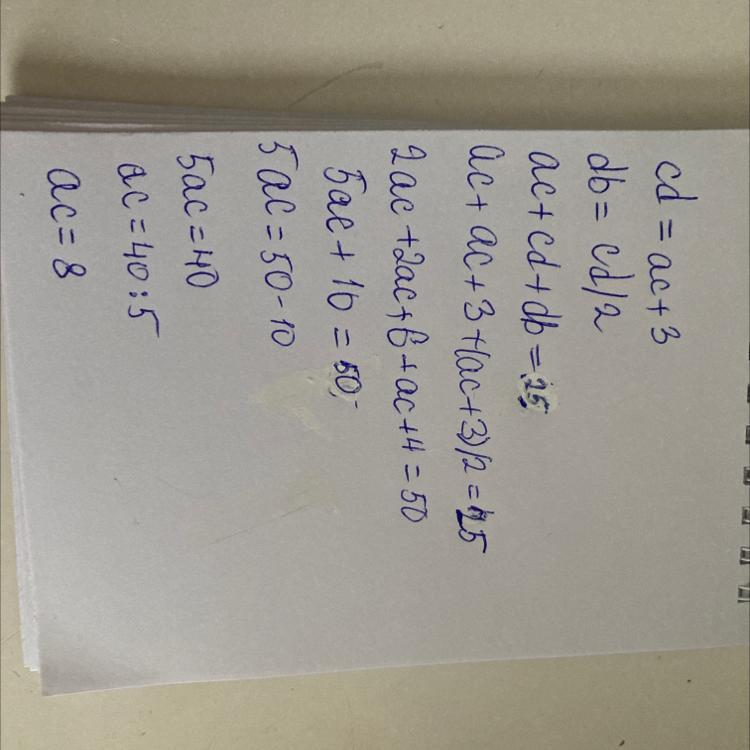 cd = ac+3
db = cd/2
ac+cd+db = 25
ac+ac+3+(ac+3)/2 = 25
2ac+2ac+6+ac+4=50
5ac+10=50
5ac=50-10
5ac=40
ac=40:5
ac=8